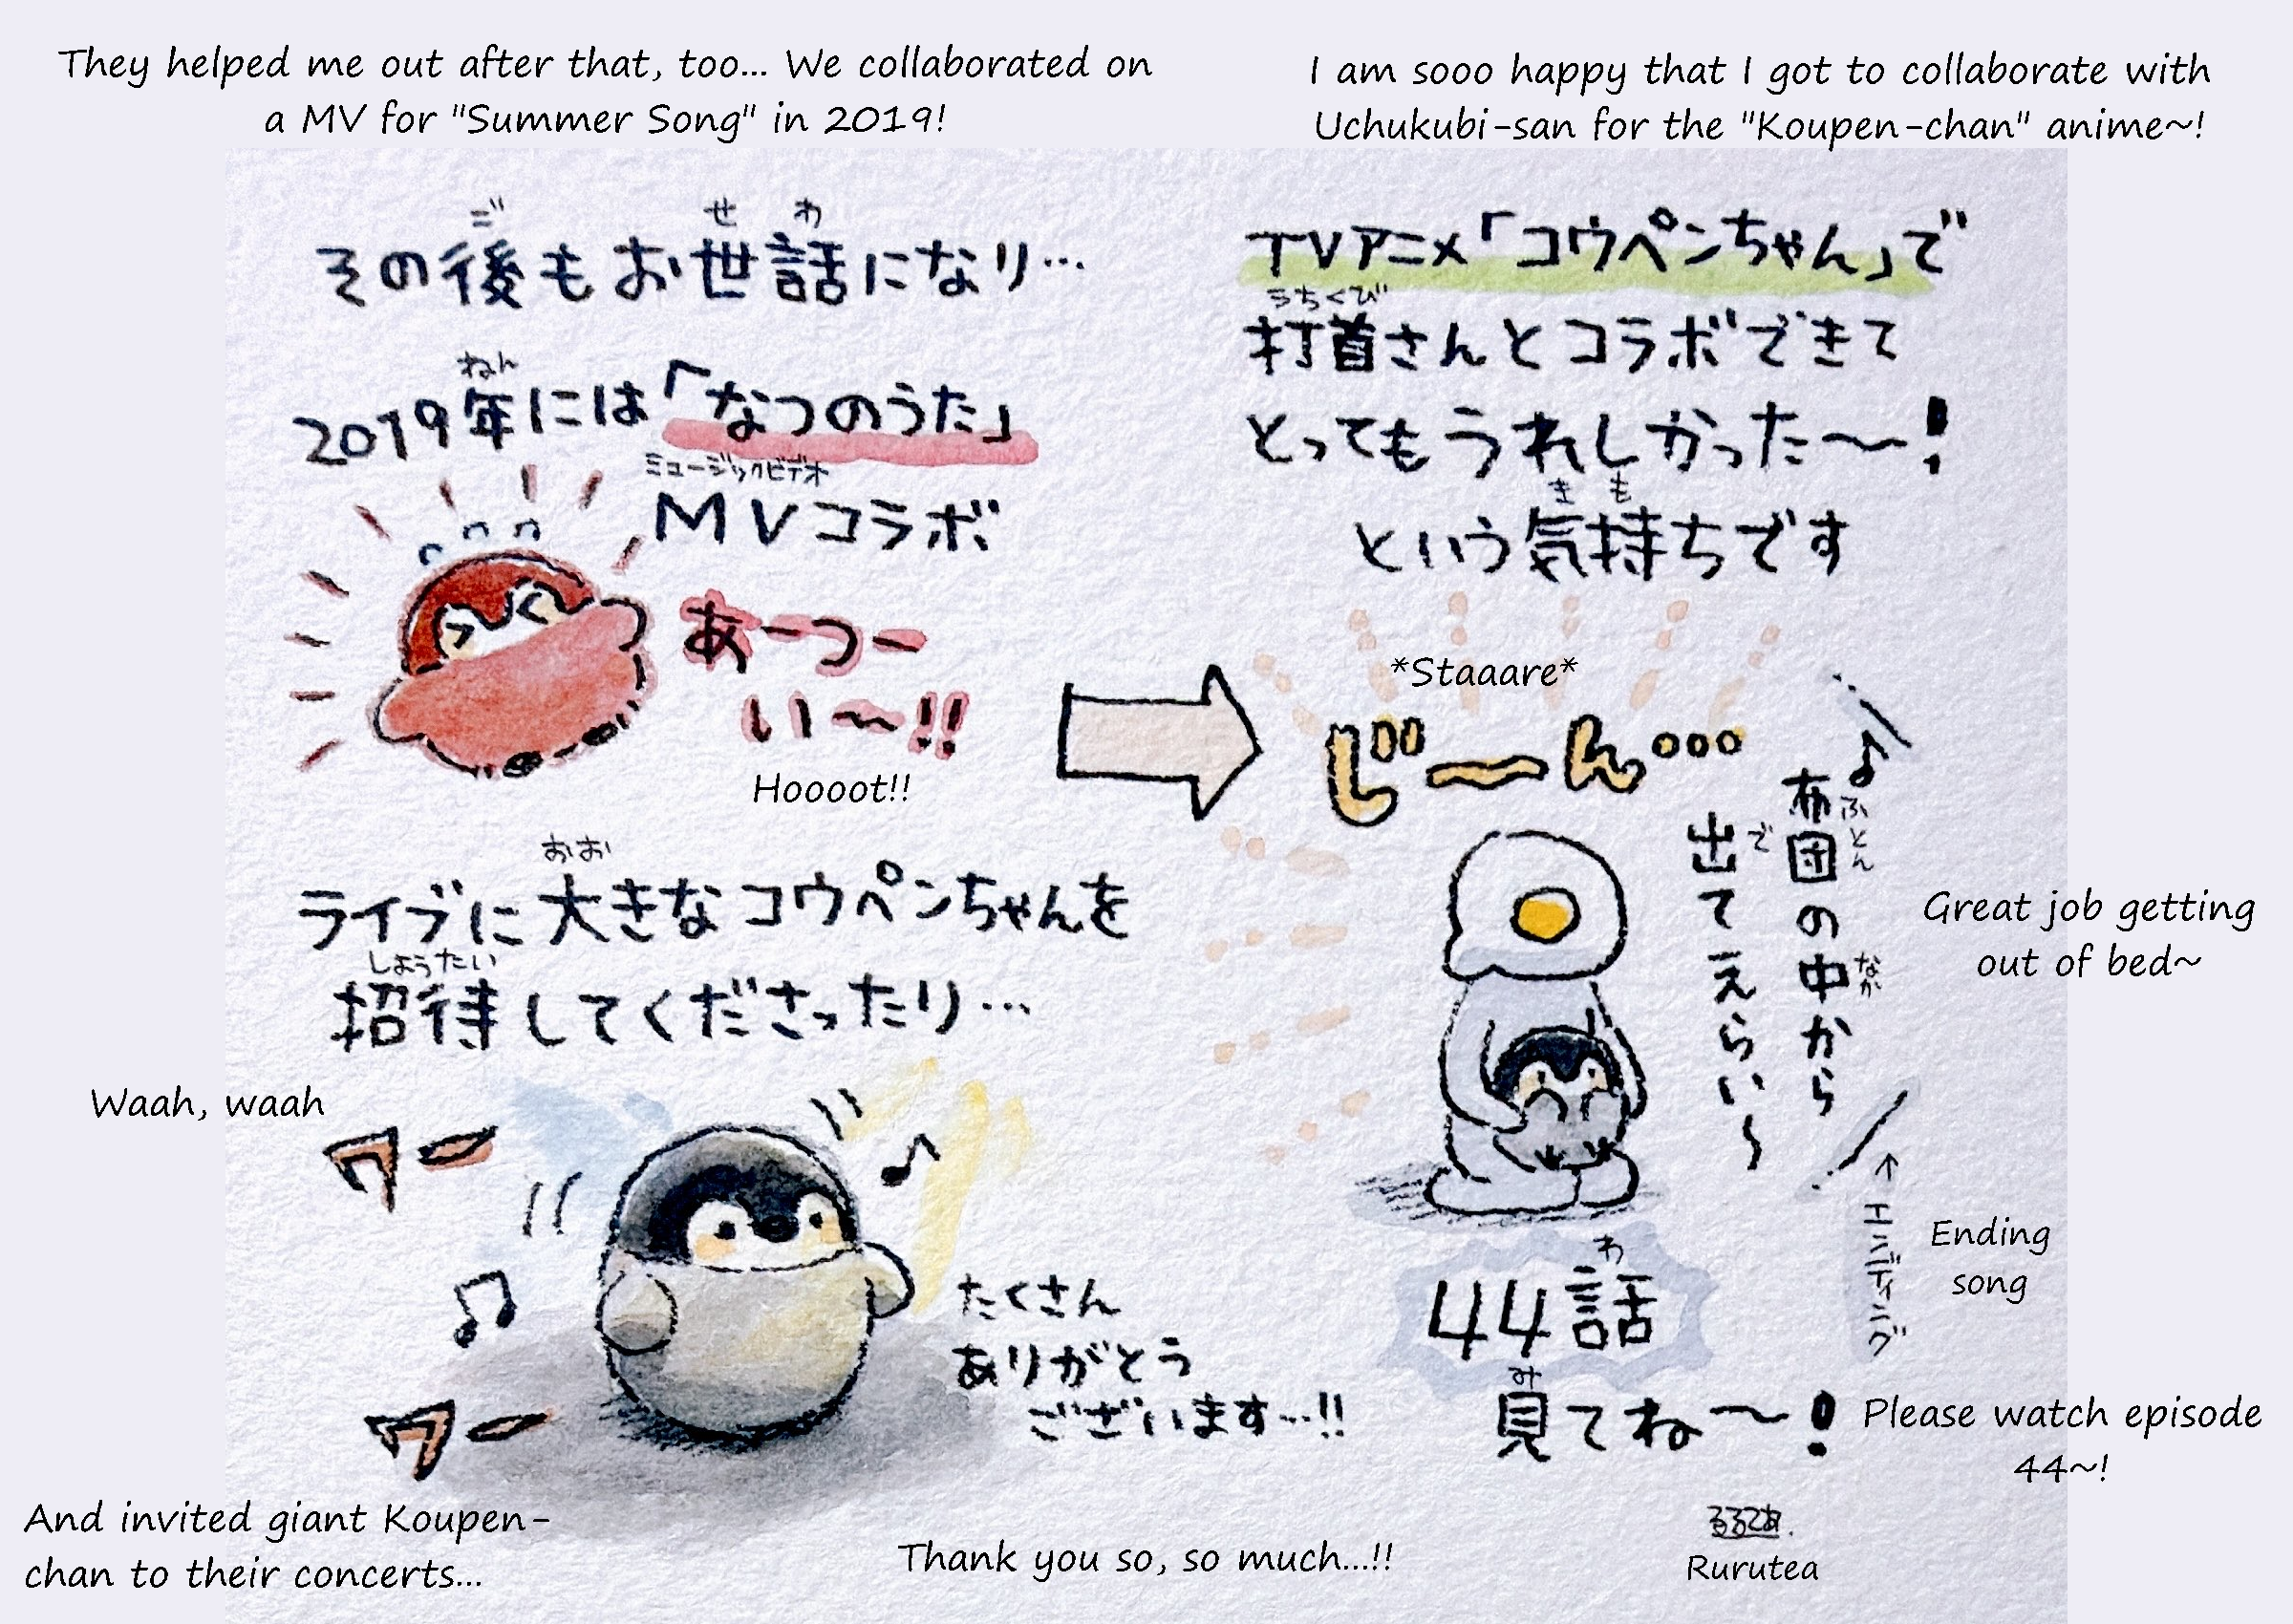 They helped me out after that, too... We collaborated on
a MV for "Summer Song" in 2019!
ご
せ わ
その後もお世話になり…
ねん
2019年には「なつのうた」
ミュージックビデオ
MVコラボ
あーつー
い〜!!
Hoooot!!
おお
ライブに大きなコウペンちゃんを
しょうたい
招待してくださったり…
Waah, waah
ワー
ワー
たくさん
ありがとう
ございます…!!
And invited giant Koupen-
chan to their concerts...
Thank you so, so much...!!
I am sooo happy that I got to collaborate with
Uchukubi-san for the "Koupen-chan" anime~!
TVアニメ「コウペンちゃん」で
うちくび
打首さんとコラボできて
とってもうれしかった〜!
き も
という気持ちです
*Staaare*
じーん…
布団の中から
ふとん
なか
出てえらい〜
で
Great job getting
out of bed~
↑エンディング
Ending
song
わ
44話
み
見てね〜!
Please watch episode
44~!
るるてあ.
Rurutea